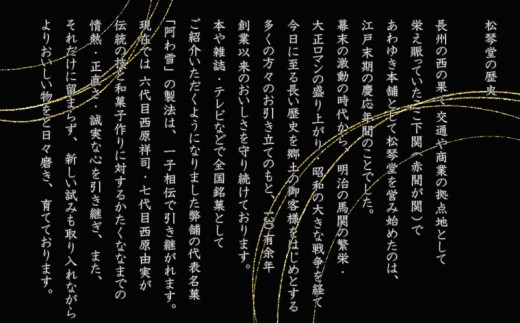 松琴堂の歴史
長州の西の果て交通や商業の拠点地として
栄え賑っていたここ下関（赤間が関）で
あわゆき本舗として松琴堂を営み始めたのは、
江戸末期の慶応年間のことでした。
幕末の激動の時代から、明治の馬関の繁栄・
大正ロマンの盛り上がり・昭和の大きな戦争を経て
今日に至る長い歴史を郷土の御客様をはじめとする
多くの方々のお引き立てのもと、一〇〇有余年
創業以来のおいしさを守り続けております。
本や雑誌・テレビなどで全国銘菓として
ご紹介いただくようになりました弊舗の代表名菓
「阿わ雪」の製法は、一子相伝で引き継がれます。
現在では 六代目西原祥司・七代目西原由実が
伝統の技と和菓子作りに対するかたくななまでの
情熱・正直さ・誠実な心を引き継ぎ、また、
それだけに留まらず、新しい試みも取り入れながら
よりおいしい物をと日々磨き、育てております。